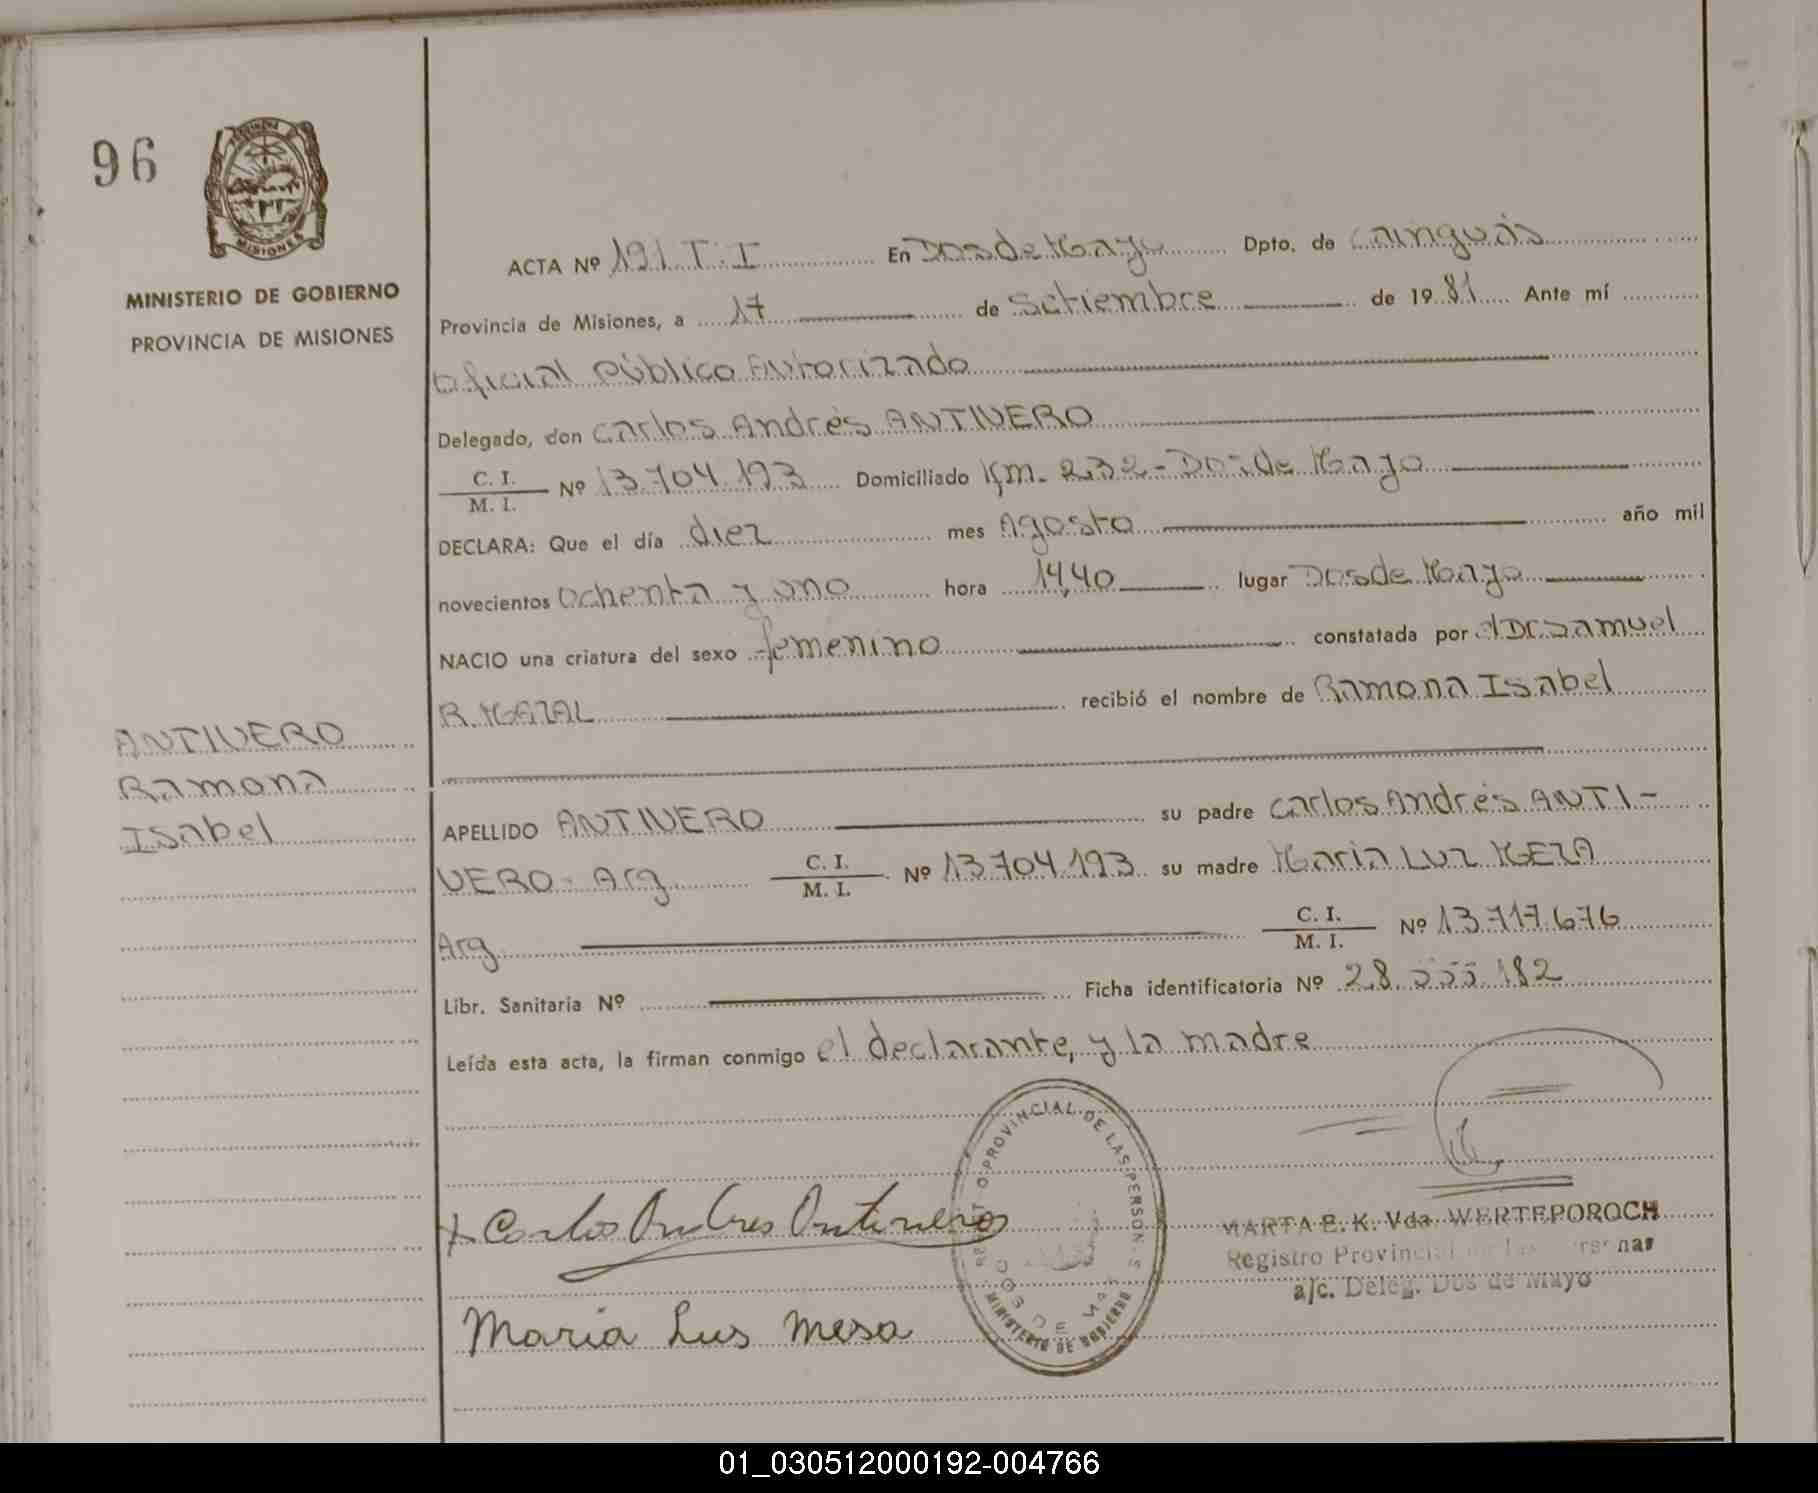 96
MISIONES
MINISTERIO DE GOBIERNO
PROVINCIA DE MISIONES
ANTIVERO
Ramona
Isabel
ACTA Nº 191 T. I En Dos de Mayo Dpto. de Cainguás
Provincia de Misiones, a 17 de Setiembre de 1981 Ante mí
Oficial Público Autorizado
Delegado, don Carlos Andrés ANTIVERO
C. I. / M. I. Nº 13.704.193 Domiciliado Km. 232 - Dos de Mayo
DECLARA: Que el día diez mes Agosto año mil
novecientos ochenta y uno hora 14,40 lugar Dos de Mayo
NACIO una criatura del sexo femenino constatada por el Dr. Samuel
R. MAZAL recibió el nombre de Ramona Isabel
APELLIDO ANTIVERO su padre Carlos Andrés ANTI-
VERO - Arg C. I. / M. I. Nº 13.704.193 su madre Maria Luz MEZA
Arg. C. I. / M. I. Nº 13.717.676
Libr. Sanitaria Nº Ficha identificatoria Nº 28.555.182
Leída esta acta, la firman conmigo el declarante, y la madre
Carlos Andres Antivero
Maria Lus Mesa
PROVINCIAL DE LAS PERSONAS
MINISTERIO DE GOBIERNO
MARTA E. K. Vda. WERTEPOROCH
Registro Provincial de las Personas
a/c. Deleg. Dos de Mayo
01_030512000192-004766